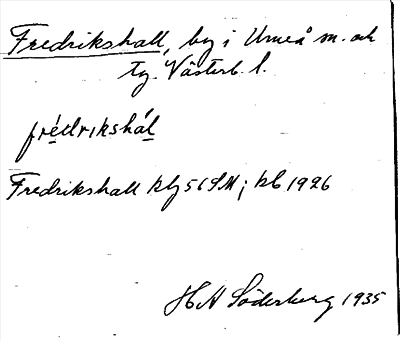 Fredrikshall, by i Umeå sn. och
tg. Västerb. l.
frédrikshál
Fredrikshall kbg 56 SM; kb 1926
H A Söderberg 1935